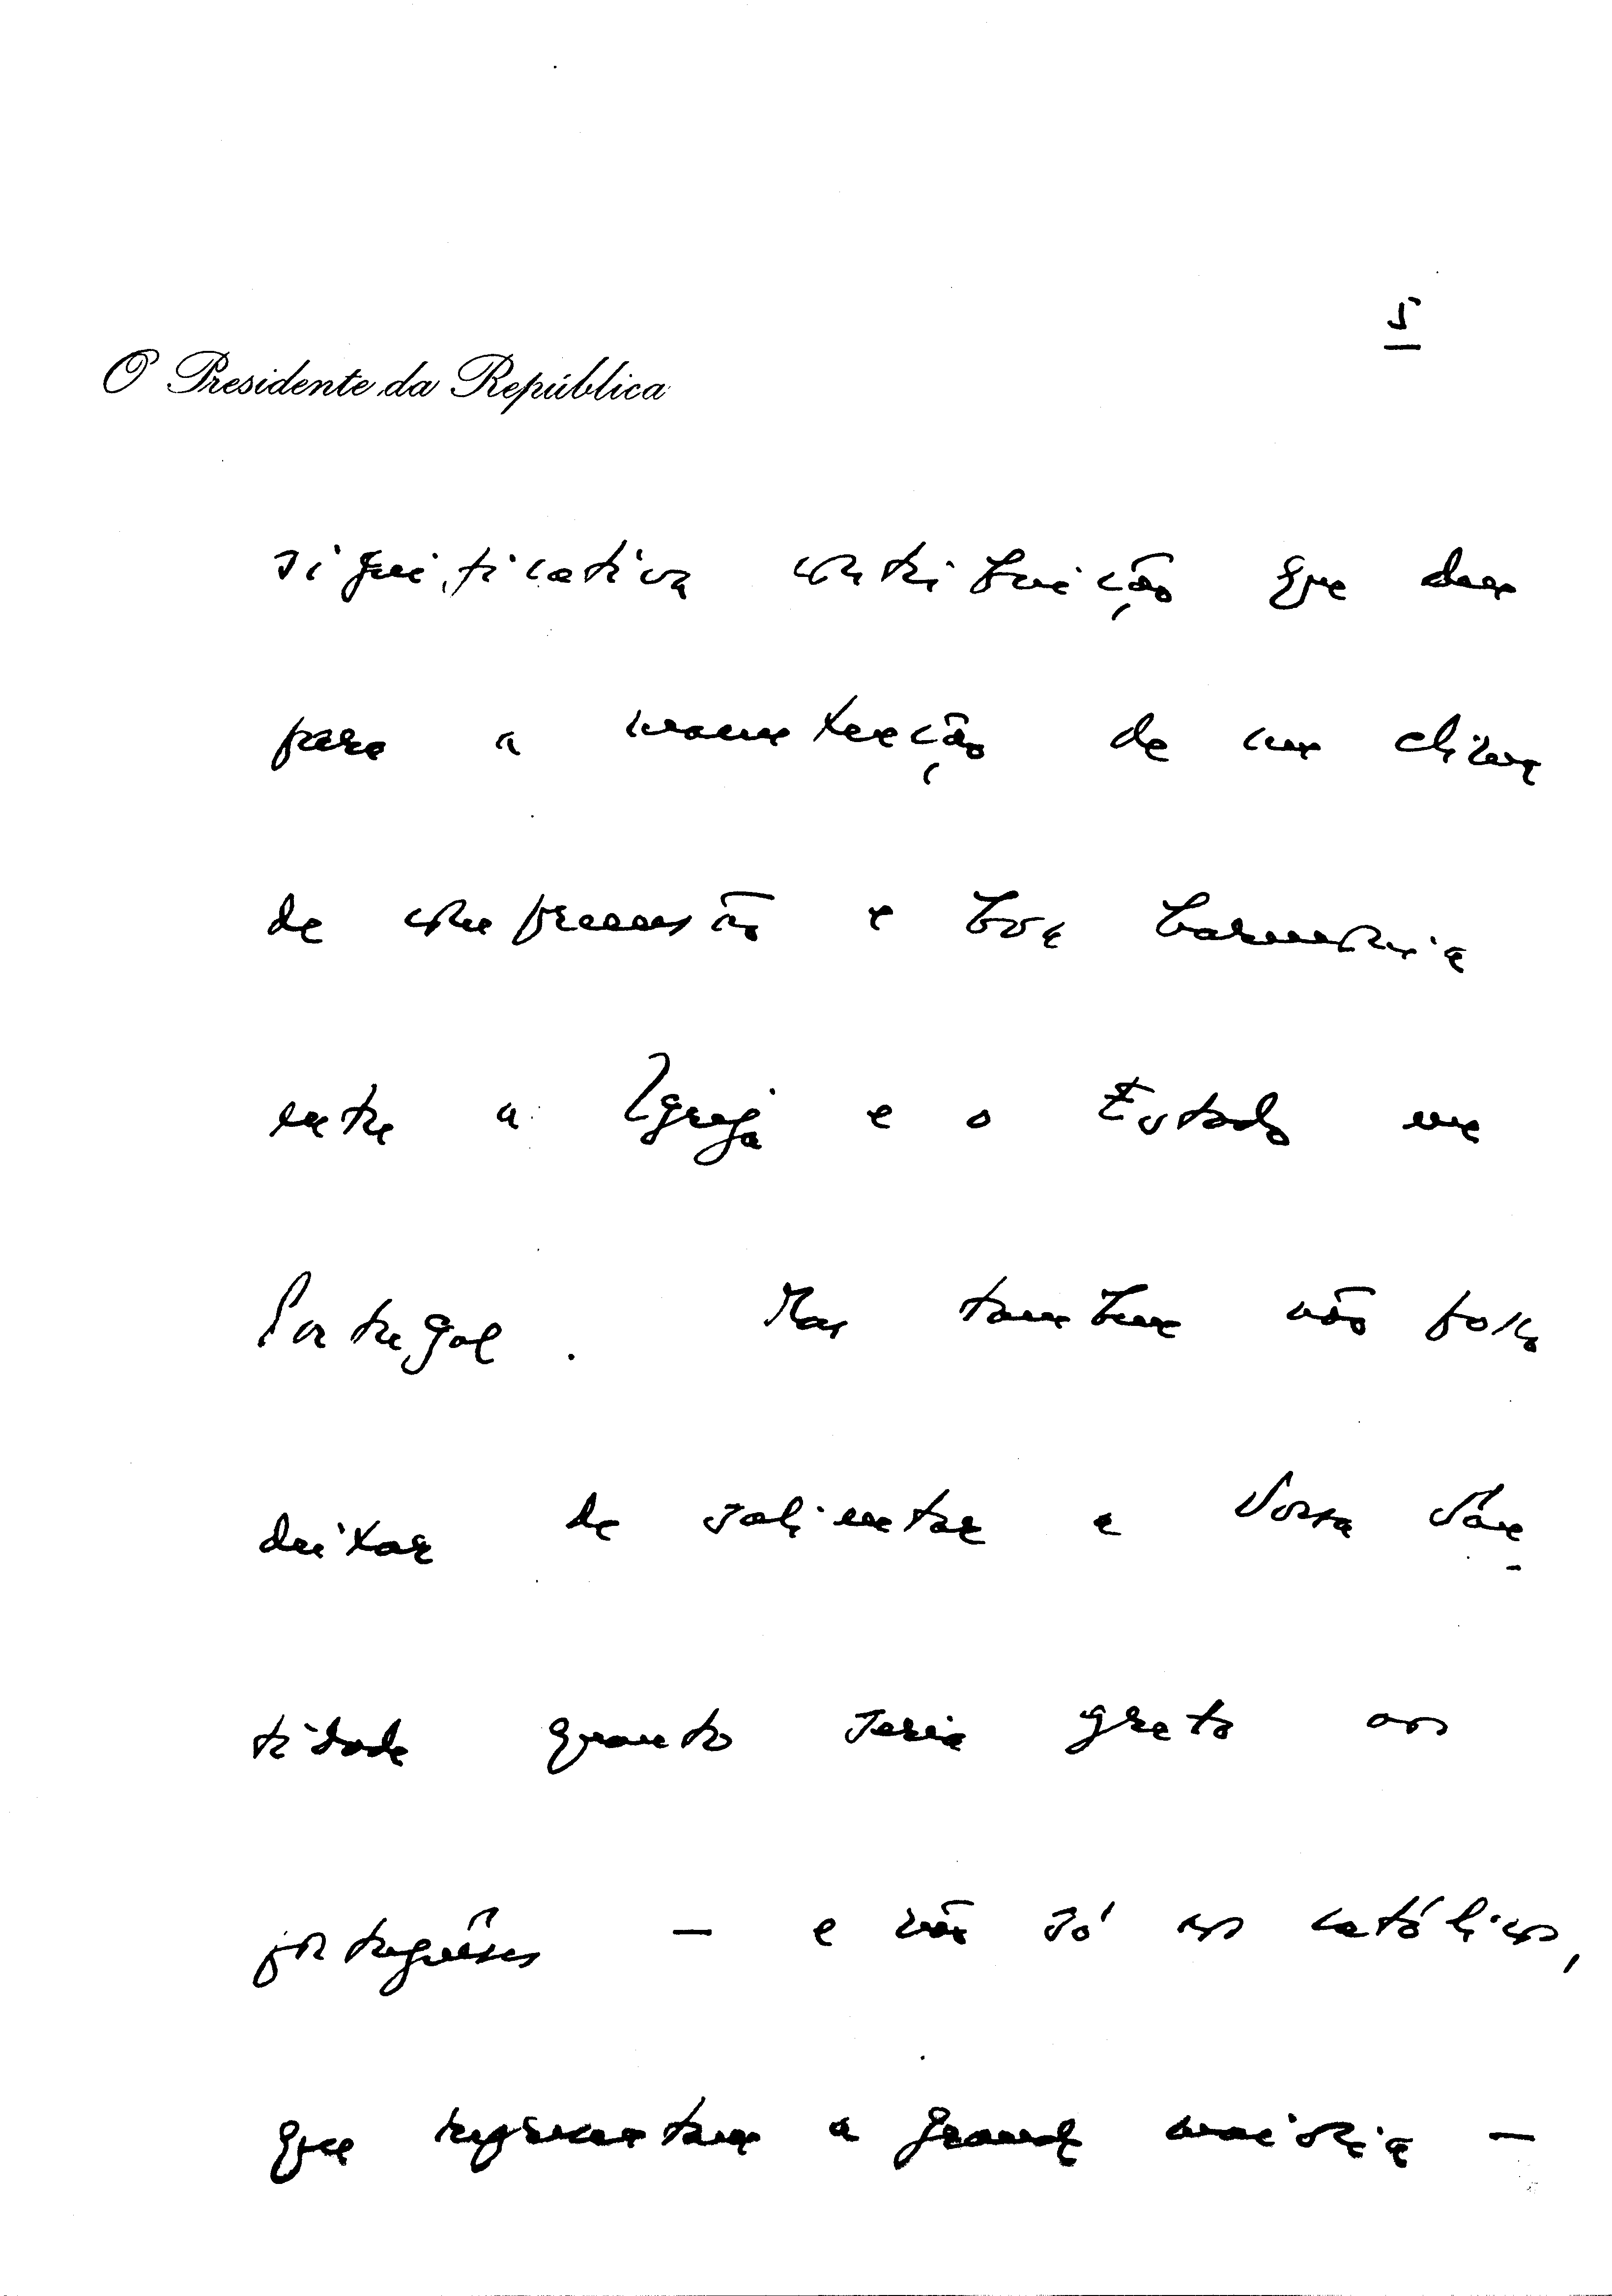 5
O Presidente da República
significativa contribuição que dão
para a manutenção de um clima
de compreensão e boa harmonia
entre a Igreja e o Estado em
Portugal. Mas também não posso
deixar de salientar a Vossa San-
tidade quanto seria grato aos
portugueses — e não só aos católicos,
que representam a grande maioria —